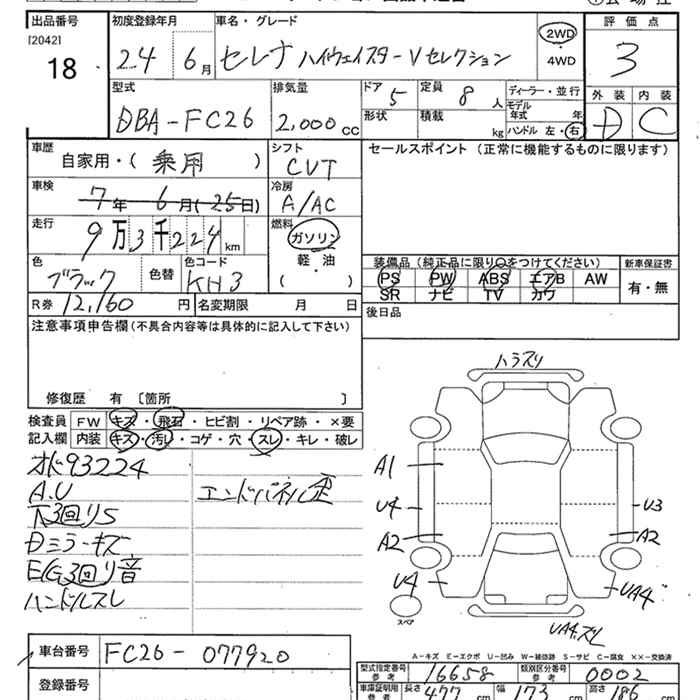 出品番号 初度登録年月 車名・グレード 2WD 評価点
[2042] 18 24 6月 セレナ ハイウェイスターVセレクション ・ 4WD 3
型式 排気量 ドア 定員 ディーラー・並行 外装 内装
DBA-FC26 2,000cc 5 8人 モデル年式 年 D C
形状 積載 kg ハンドル 左・右
車歴 自家用・(乗用) シフト CVT セールスポイント(正常に機能するものに限ります)
車検 7年 6月(25日) 冷房 A/AC
走行 9万3千224km 燃料 ガソリン
軽・油
( )
色 ブラック 色替 色コード KH3
装備品(純正品に限り○をつけてください) 新車保証書
PS PW ABS エアB AW 有・無
SR ナビ TV カワ
R券 12,160円 名変期限 月 日 後日品
注意事項申告欄(不具合内容等は具体的に記入して下さい)
修復歴 有 〔箇所 〕
検査員 FW キズ・飛石・ヒビ割・リペア跡・×要
記入欄 内装 キズ・汚レ・コゲ・穴・スレ・キレ・破レ
オド93224
A.U エンドパネル歪
下3回リS
Dミラーキズ
EG3回リ音
ハンドルスレ
ハラスリ
A1
U4 U3
A2 A2
U4 UA4
スペア UA4.スリ
A-キズ E-エクボ U-凹み W-補修跡 S-サビ C-腐食 ××-交換済
車台番号 FC26-077920
型式指定番号 参考 16658 類別区分番号 参考 0002
登録番号
車庫証明用 参考 長さ 477cm 幅 173cm 高さ 186cm